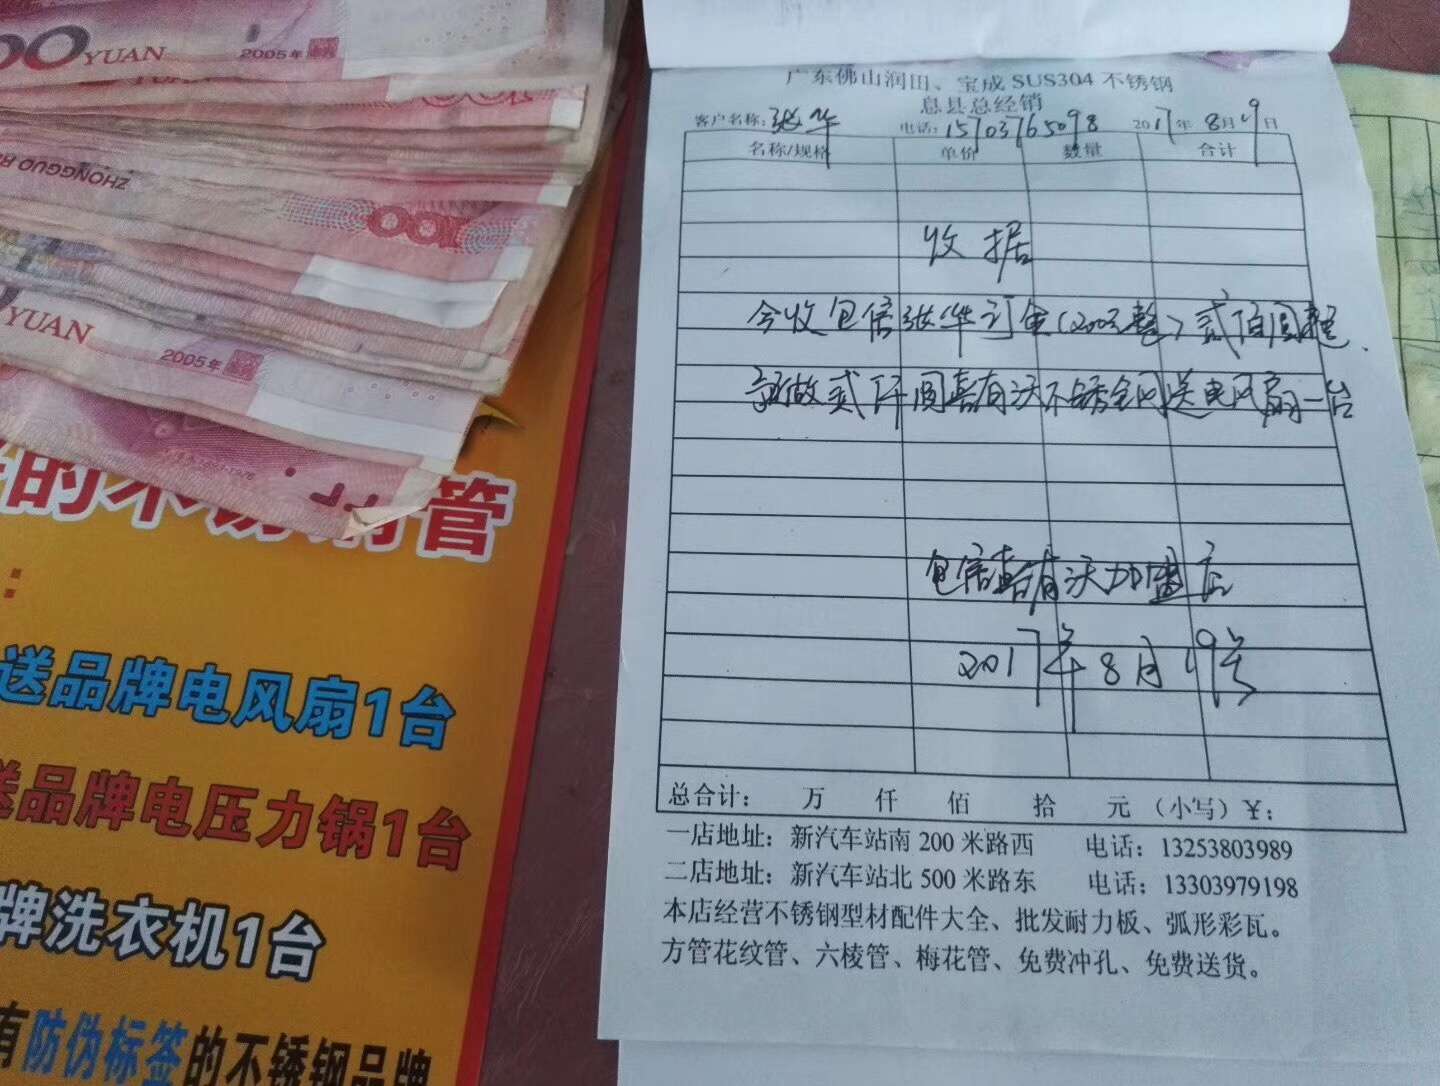 00 YUAN 2005年
100
ZHONGGUO R
YUAN
2005年
的不 管
：
送品牌电风扇1台
送品牌电压力锅1台
牌洗衣机1台
有防伪标签的不锈钢品牌
广东佛山润田、宝成 SUS304 不锈钢
息县总经销
客户名称：张华 电话：15703765098 2017年 8月19日
名称/规格 单价 数量 合计
收据
今收包信张华订金（200元整）贰佰圆整.
做贰仟圆喜有沃不锈钢送电风扇一台
包信喜有沃加盟店
2017年8月19号
总合计： 万 仟 佰 拾 元 （小写）￥：
一店地址：新汽车站南 200 米路西 电话：13253803989
二店地址：新汽车站北 500 米路东 电话：13303979198
本店经营不锈钢型材配件大全、批发耐力板、弧形彩瓦。
方管花纹管、六棱管、梅花管、免费冲孔、免费送货。